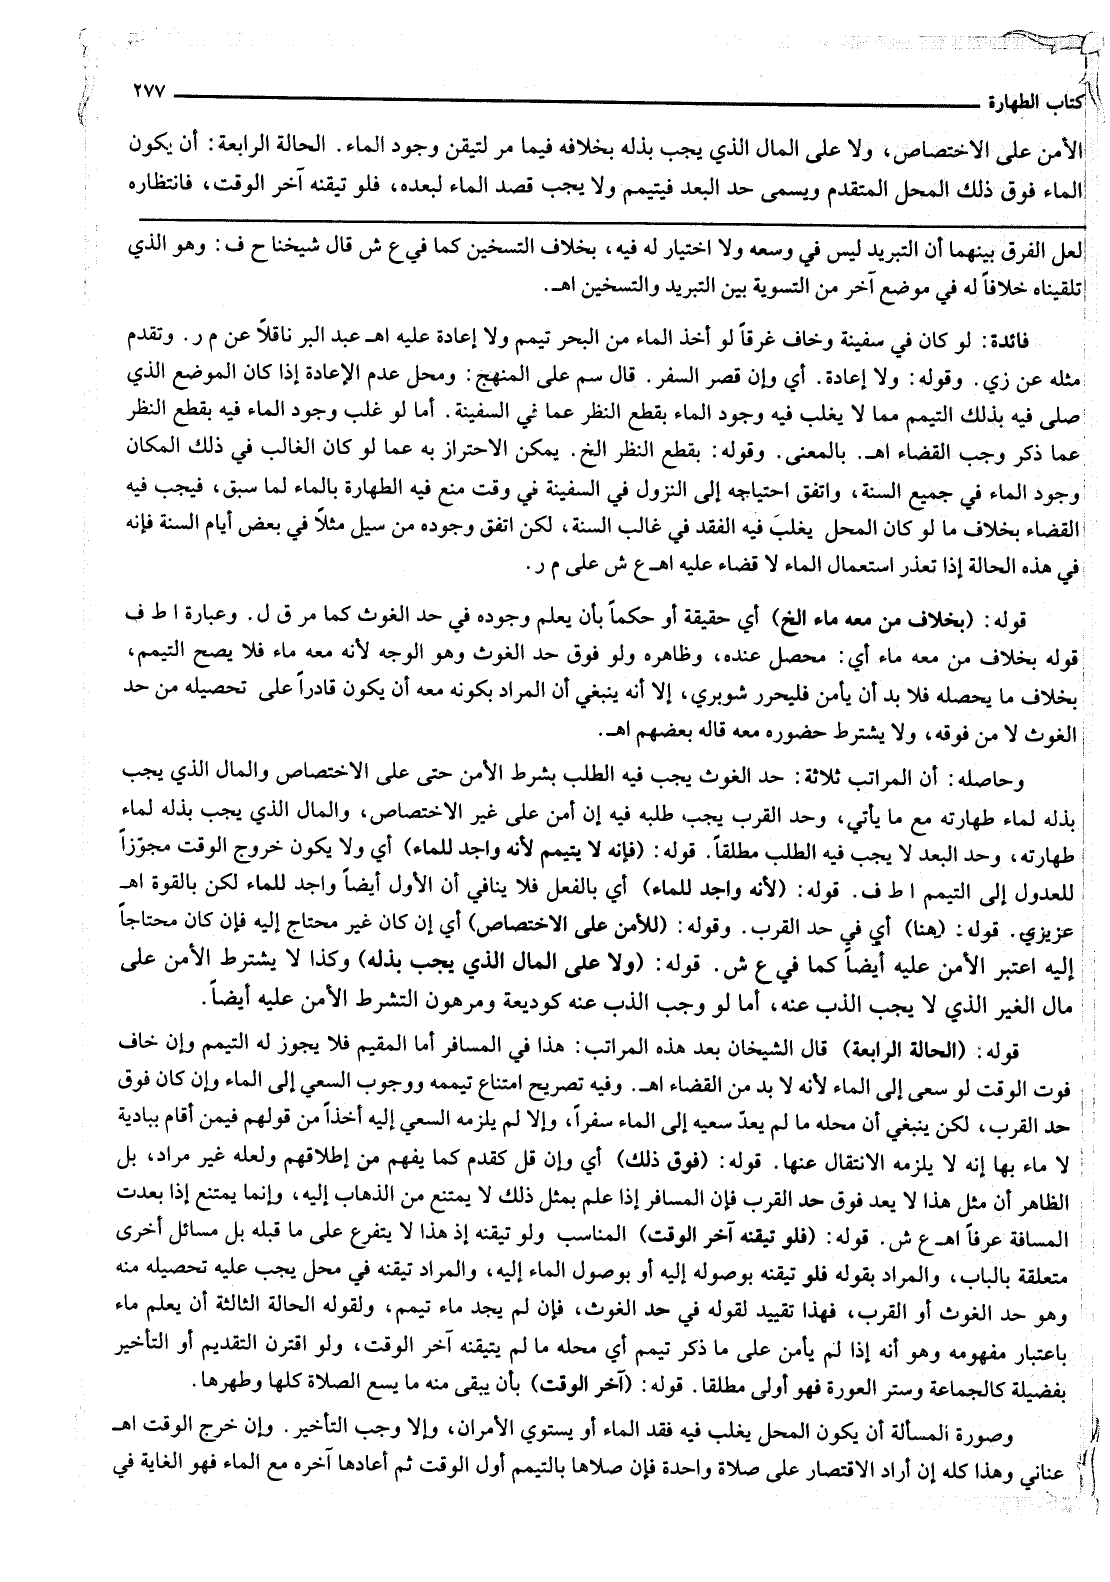 كتاب الطهارة ٢٧٧
الأمن على الاختصاص، ولا على المال الذي يجب بذله بخلافه فيما مر لتيقن وجود الماء. الحالة الرابعة: أن يكون
الماء فوق ذلك المحل المتقدم ويسمى حد البعد فيتيمم ولا يجب قصد الماء لبعده، فلو تيقنه آخر الوقت، فانتظاره
لعل الفرق بينهما أن التبريد ليس في وسعه ولا اختيار له فيه، بخلاف التسخين كما في ع ش قال شيخنا ح ف: وهو الذي
تلقيناه خلافاً له في موضع آخر من التسوية بين التبريد والتسخين اهـ.
فائدة: لو كان في سفينة وخاف غرقاً لو أخذ الماء من البحر تيمم ولا إعادة عليه اهـ عبد البر ناقلاً عن م ر. وتقدم
مثله عن زي. وقوله: ولا إعادة. أي وإن قصر السفر. قال سم على المنهج: ومحل عدم الإعادة إذا كان الموضع الذي
صلى فيه بذلك التيمم مما لا يغلب فيه وجود الماء بقطع النظر عما في السفينة. أما لو غلب وجود الماء فيه بقطع النظر
عما ذكر وجب القضاء اهـ. بالمعنى. وقوله: بقطع النظر الخ. يمكن الاحتراز به عما لو كان الغالب في ذلك المكان
وجود الماء في جميع السنة، واتفق احتياجه إلى النزول في السفينة في وقت منع فيه الطهارة بالماء لما سبق، فيجب فيه
القضاء بخلاف ما لو كان المحل يغلب فيه الفقد في غالب السنة، لكن اتفق وجوده من سيل مثلاً في بعض أيام السنة فإنه
في هذه الحالة إذا تعذر استعمال الماء لا قضاء عليه اهـ ع ش على م ر.
قوله: (بخلاف من معه ماء الخ) أي حقيقة أو حكماً بأن يعلم وجوده في حد الغوث كما مر ق ل. وعبارة ا ط ف
قوله بخلاف من معه ماء أي: محصل عنده، وظاهره ولو فوق حد الغوث وهو الوجه لأنه معه ماء فلا يصح التيمم،
بخلاف ما يحصله فلا بد أن يأمن فليحرر شوبري، إلا أنه ينبغي أن المراد بكونه معه أن يكون قادراً على تحصيله من حد
الغوث لا من فوقه، ولا يشترط حضوره معه قاله بعضهم اهـ.
وحاصله: أن المراتب ثلاثة: حد الغوث يجب فيه الطلب بشرط الأمن حتى على الاختصاص والمال الذي يجب
بذله لماء طهارته مع ما يأتي، وحد القرب يجب طلبه فيه إن أمن على غير الاختصاص، والمال الذي يجب بذله لماء
طهارته، وحد البعد لا يجب فيه الطلب مطلقاً. قوله: (فإنه لا يتيمم لأنه واجد للماء) أي ولا يكون خروج الوقت مجوّزاً
للعدول إلى التيمم ا ط ف. قوله: (لأنه واجد للماء) أي بالفعل فلا ينافي أن الأول أيضاً واجد للماء لكن بالقوة اهـ
عزيزي. قوله: (هنا) أي في حد القرب. وقوله: (للأمن على الاختصاص) أي إن كان غير محتاج إليه فإن كان محتاجاً
إليه اعتبر الأمن عليه أيضاً كما في ع ش. قوله: (ولا على المال الذي يجب بذله) وكذا لا يشترط الأمن على
مال الغير الذي لا يجب الذب عنه، أما لو وجب الذب عنه كوديعة ومرهون التشرط الأمن عليه أيضاً.
قوله: (الحالة الرابعة) قال الشيخان بعد هذه المراتب: هذا في المسافر أما المقيم فلا يجوز له التيمم وإن خاف
فوت الوقت لو سعى إلى الماء لأنه لا بد من القضاء اهـ. وفيه تصريح امتناع تيممه ووجوب السعي إلى الماء وإن كان فوق
حد القرب، لكن ينبغي أن محله ما لم يعدّ سعيه إلى الماء سفراً، وإلا لم يلزمه السعي إليه أخذاً من قولهم فيمن أقام ببادية
لا ماء بها إنه لا يلزمه الانتقال عنها. قوله: (فوق ذلك) أي وإن قل كقدم كما يفهم من إطلاقهم ولعله غير مراد، بل
الظاهر أن مثل هذا لا يعد فوق حد القرب فإن المسافر إذا علم بمثل ذلك لا يمتنع من الذهاب إليه، وإنما يمتنع إذا بعدت
المسافة عرفاً اهـ ع ش. قوله: (فلو تيقنه آخر الوقت) المناسب ولو تيقنه إذ هذا لا يتفرع على ما قبله بل مسائل أخرى
متعلقة بالباب، والمراد بقوله فلو تيقنه بوصوله إليه أو بوصول الماء إليه، والمراد تيقنه في محل يجب عليه تحصيله منه
وهو حد الغوث أو القرب، فهذا تقييد لقوله في حد الغوث، فإن لم يجد ماء تيمم، ولقوله الحالة الثالثة أن يعلم ماء
باعتبار مفهومه وهو أنه إذا لم يأمن على ما ذكر تيمم أي محله ما لم يتيقنه آخر الوقت، ولو اقترن التقديم أو التأخير
بفضيلة كالجماعة وستر العورة فهو أولى مطلقا. قوله: (آخر الوقت) بأن يبقى منه ما يسع الصلاة كلها وطهرها.
وصورة المسألة أن يكون المحل يغلب فيه فقد الماء أو يستوي الأمران، وإلا وجب التأخير. وإن خرج الوقت اهـ
عناني وهذا كله إن أراد الاقتصار على صلاة واحدة فإن صلاها بالتيمم أول الوقت ثم أعادها آخره مع الماء فهو الغاية في